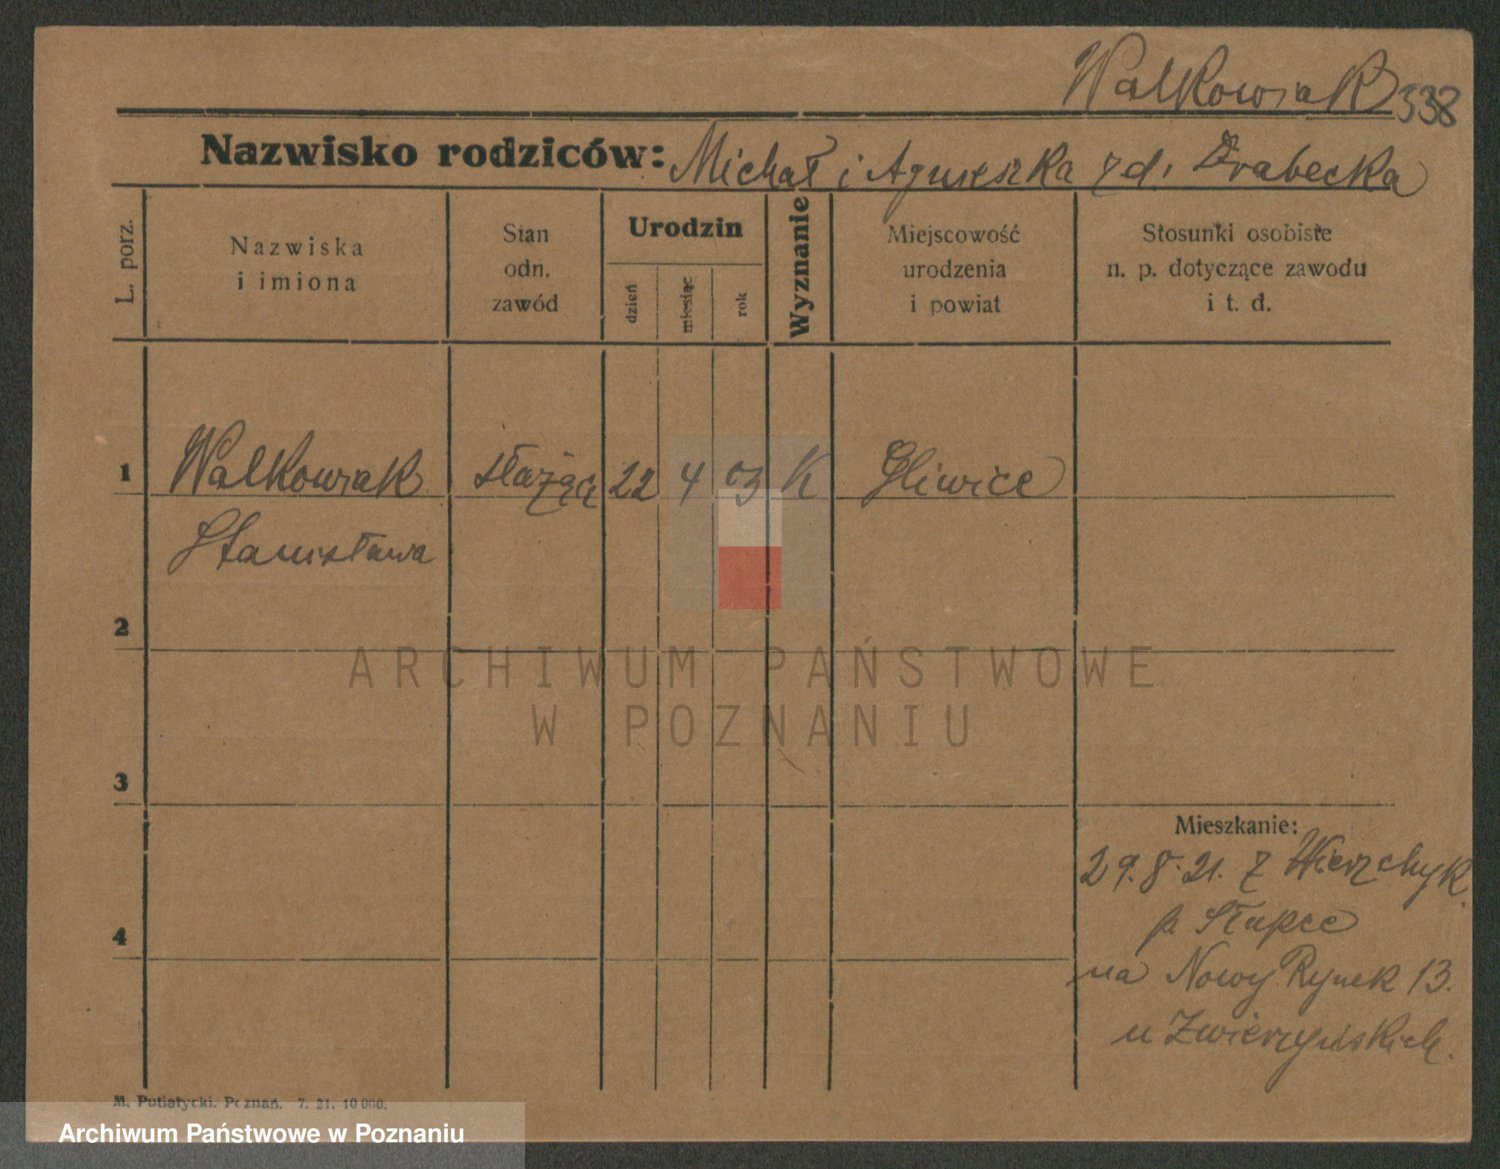 Walkowiak 338
Nazwisko rodziców: Michał i Agnieszka zd. Drabecka
L. porz.
Nazwiska
i imiona
Stan
odn.
zawód
Urodzin
dzień
miesiąc
rok
Wyznanie
Miejscowość
urodzenia
i powiat
Stosunki osobiste
n. p. dotyczące zawodu
i t. d.
1 Walkowiak służąca 22 4 03 K Gliwice
Stanisława
2
ARCHIWUM PAŃSTWOWE
W POZNANIU
3
Mieszkanie:
29.8.21. z
p. Słupce
4
na Nowy Rynek 13.
u Zwierzyńskich.
M. Putiatycki. Poznań. 7. 21. 10 000.
Archiwum Państwowe w Poznaniu